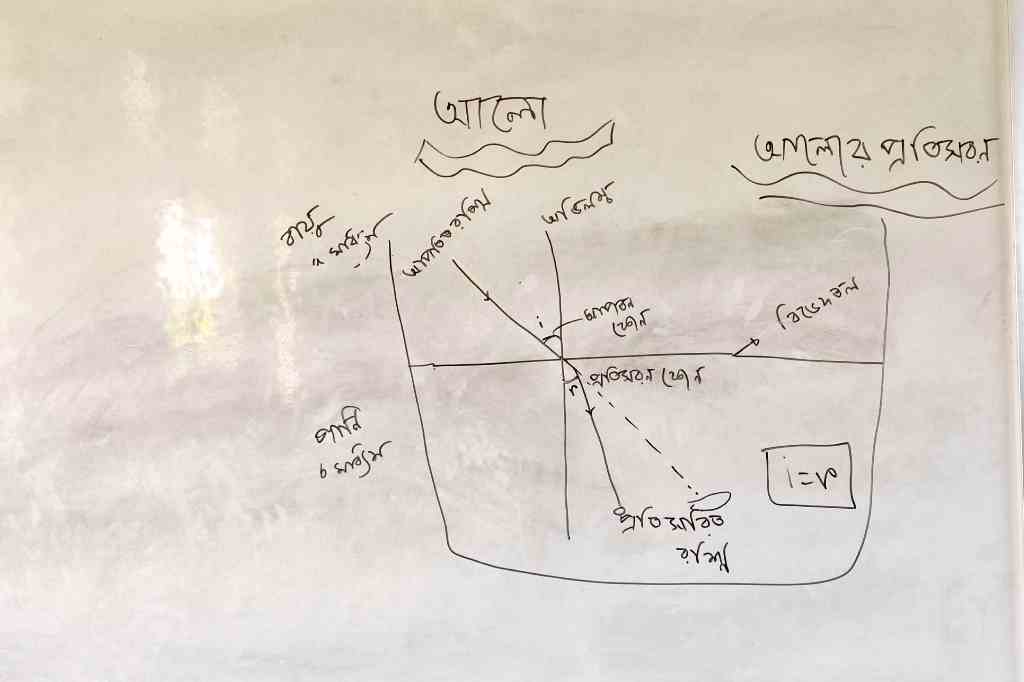 আলো
আলোর প্রতিসরন
বায়ু
a মাধ্যম
আপতিত রশ্মি
অভিলম্ব
i
আপতন
কোন
বিভেদতল
r
প্রতিসরন কোন
পানি
b মাধ্যম
i=r
প্রতিসরিত
রশ্মি